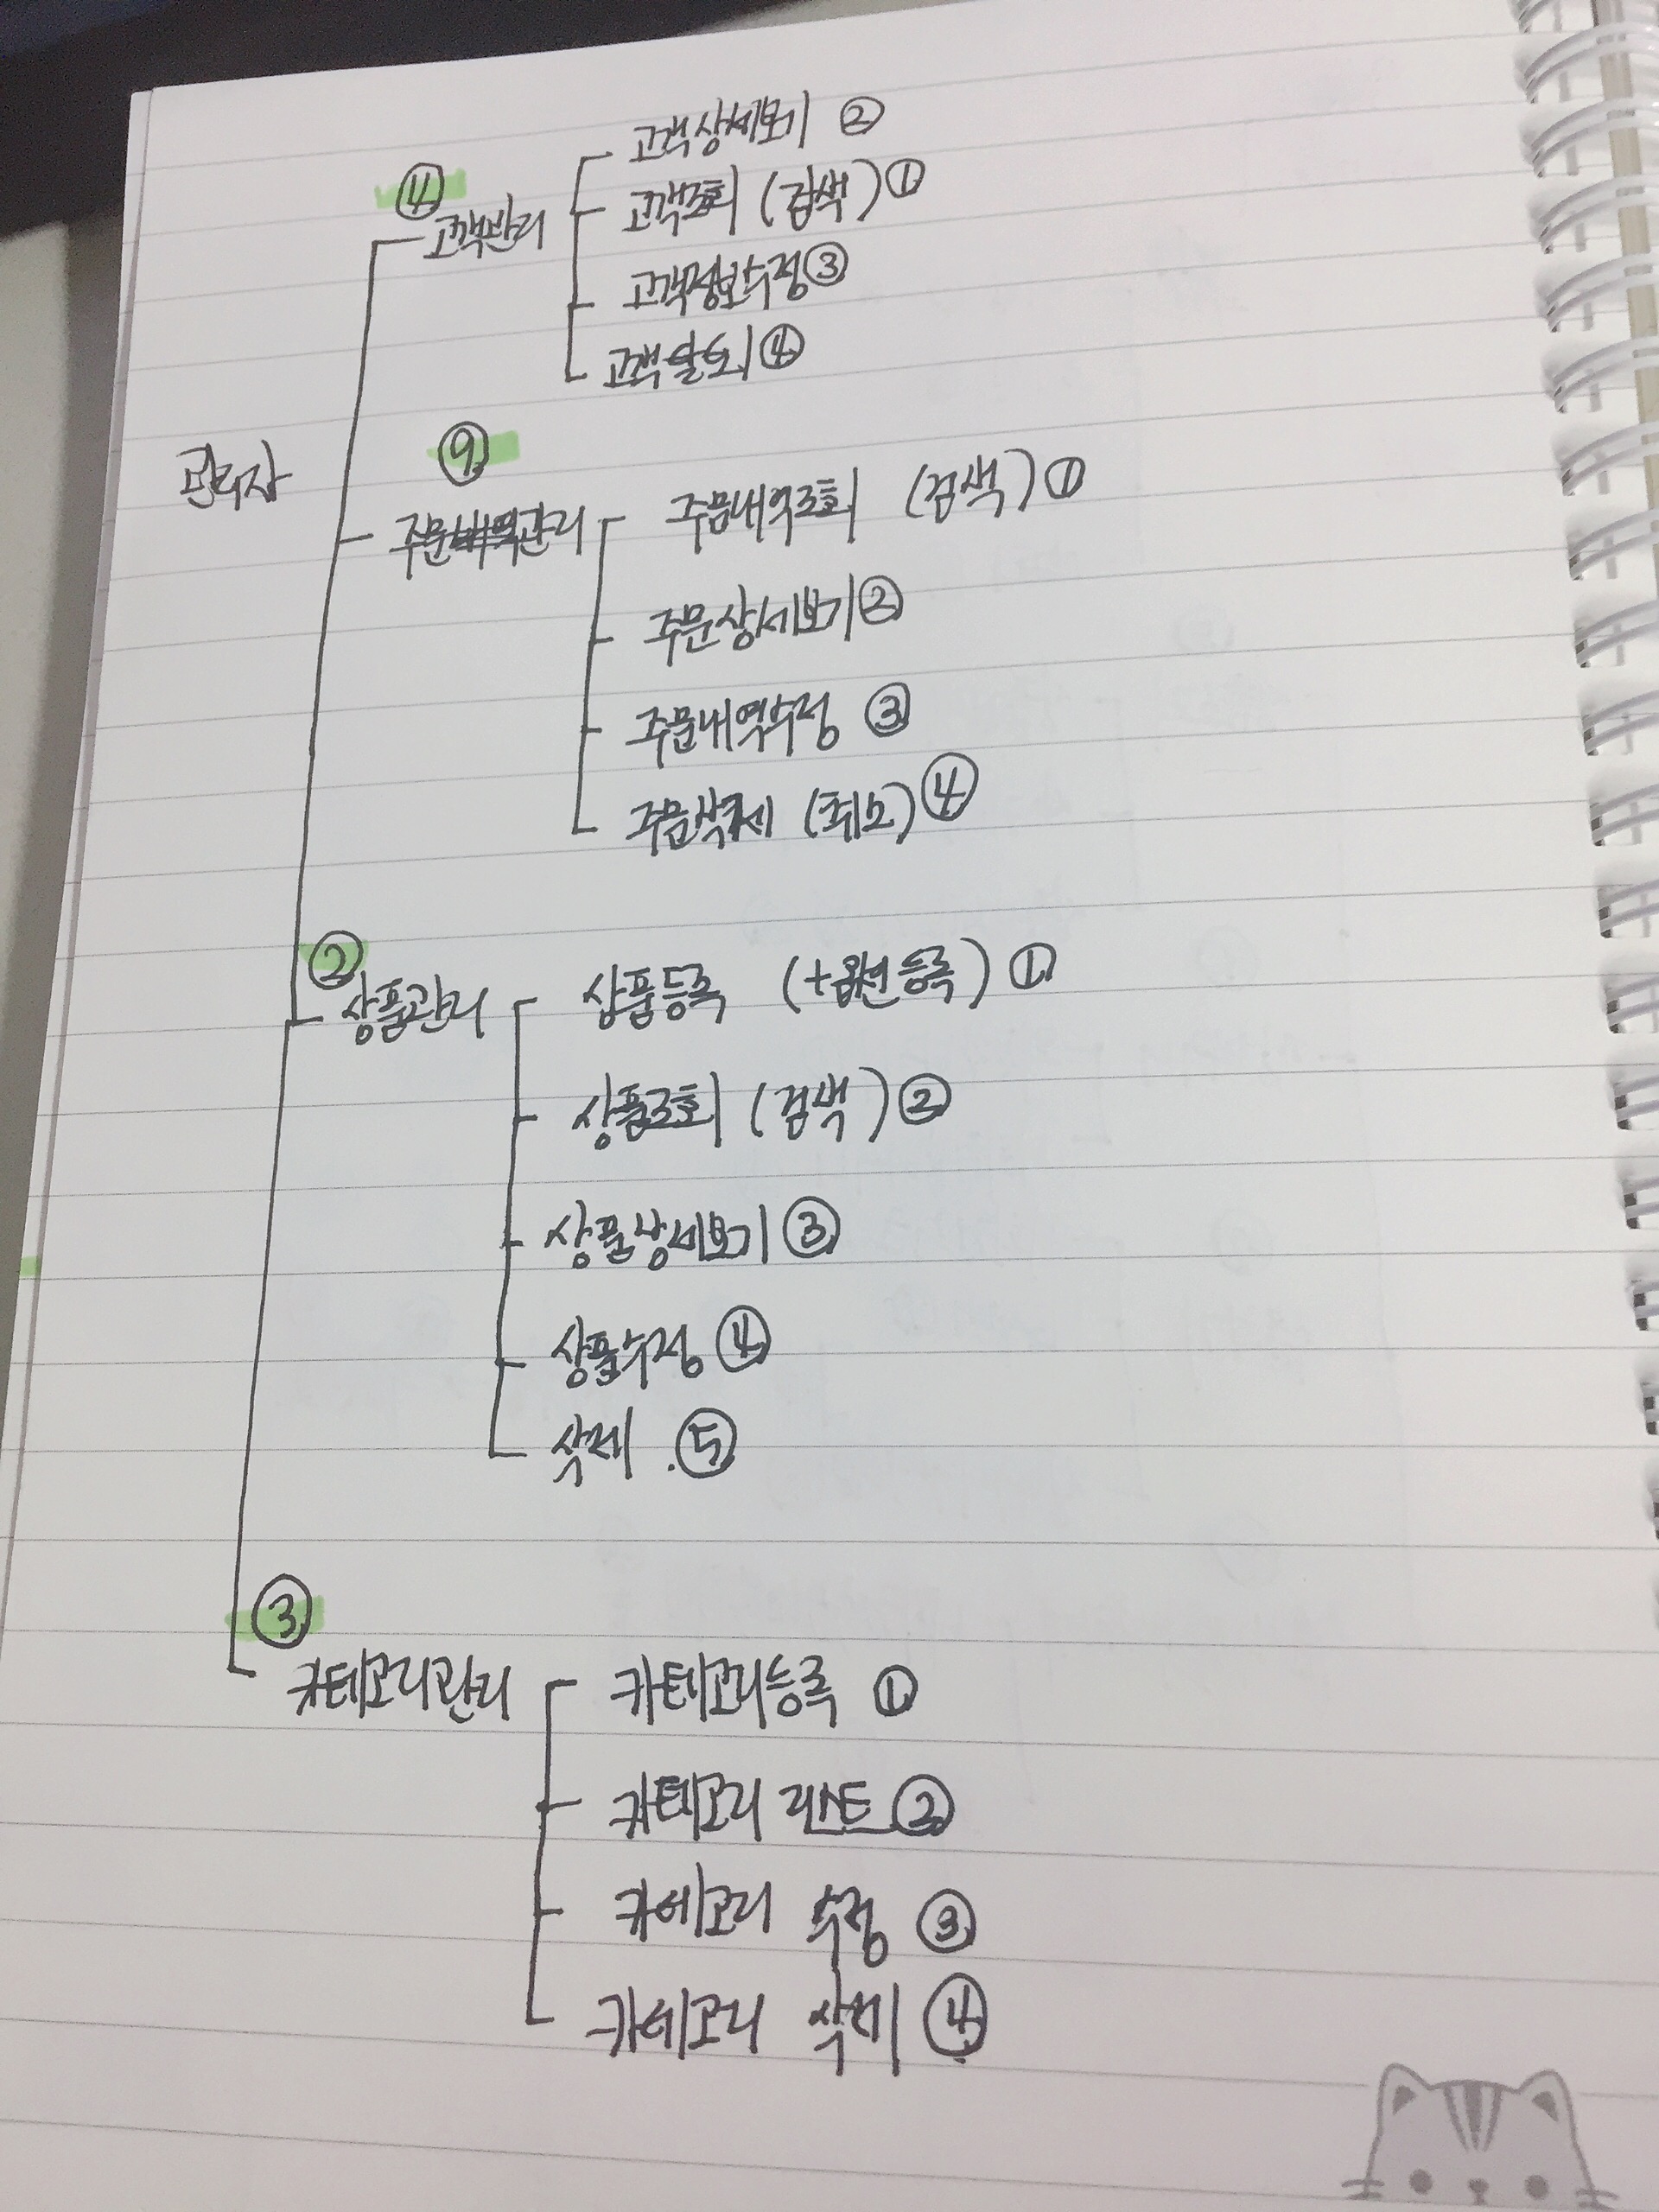 관리자
④
고객관리
고객상세보기 ②
고객조회 (검색) ①
고객정보수정 ③
고객탈퇴 ④
⑨
주문내역관리
주문내역조회 (검색) ①
주문상세보기 ②
주문내역수정 ③
주문삭제 (취소) ④
②
상품관리
상품등록 (+옵션등록) ①
상품조회 (검색) ②
상품상세보기 ③
상품수정 ④
삭제 ⑤
③
카테고리관리
카테고리등록 ①
카테고리 리스트 ②
카테고리 수정 ③
카테고리 삭제 ④